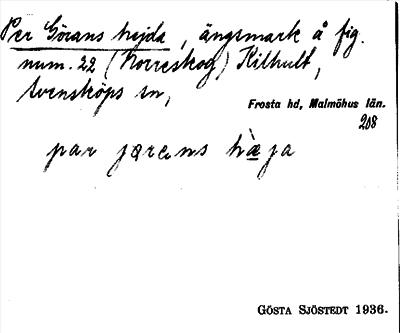 Per Görans hejda, ängsmark å fig.
num. 22 (Norreskog) Kilhult,
Svensköps sn,
Frosta hd, Malmöhus län.
208
par jɶrans hæja
GÖSTA SJÖSTEDT 1936.